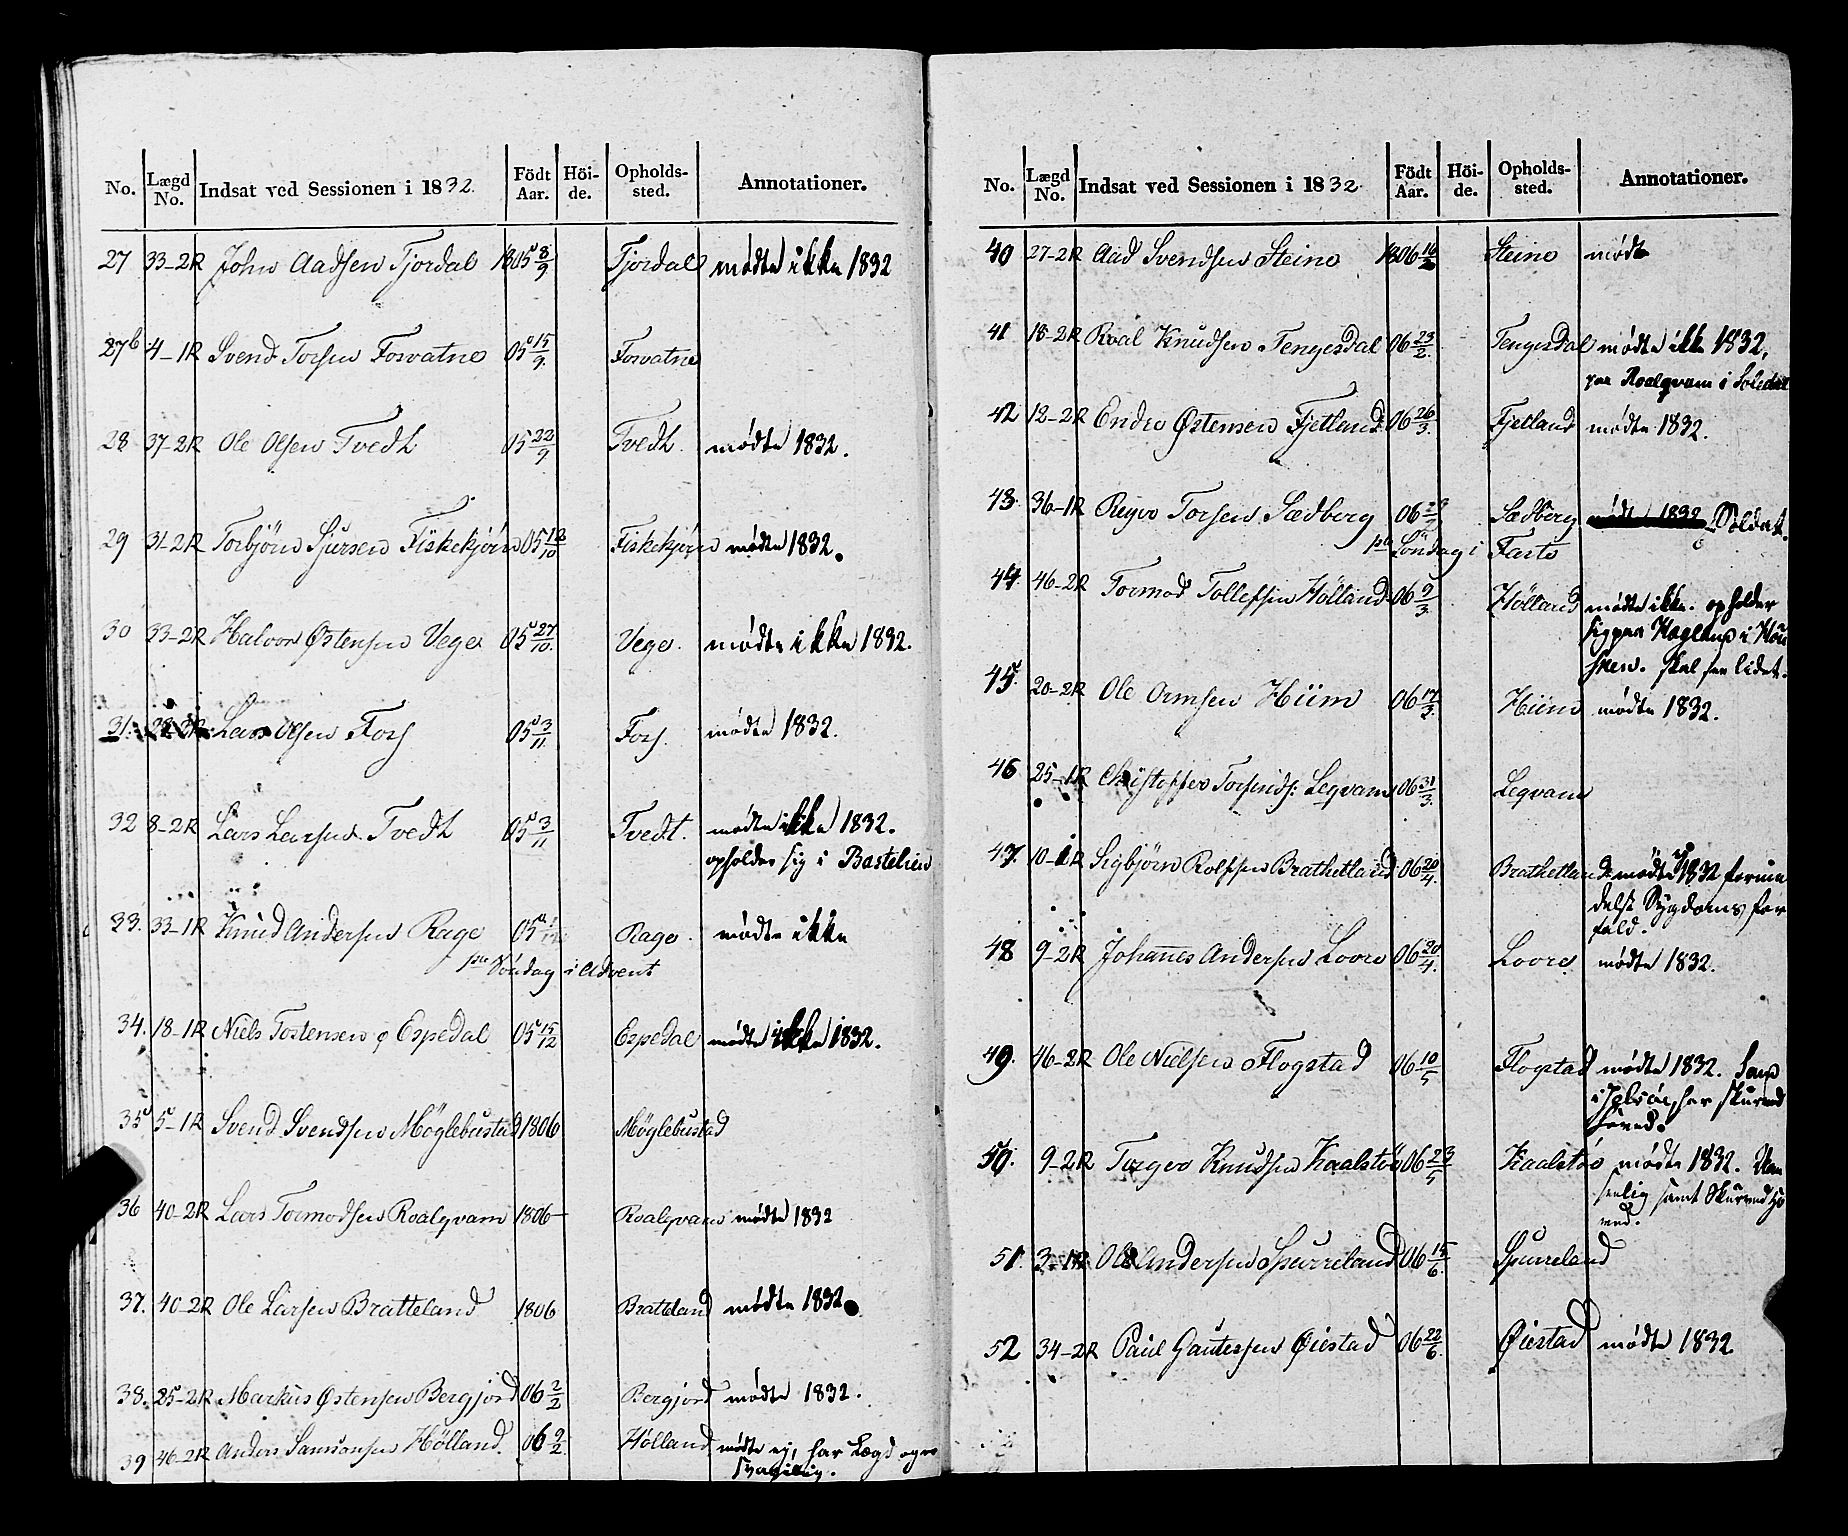 No. Lægd No. Indsat ved Sessionen i 1832. Födt Aar. Höi-de. Opholds-sted. Annotationer.
27 33-2R John Aadsen Tjordal 1805 8/9 Tjordal mødte ikke 1832
27b 4-1R Svend Torsen Forvatne 05 15/9. Forvatne
28 37-2R Ole Olsen Tvedt 05 22/9 Tvedt. mødte 1832.
29 31-2R Torbjörn Sjursen Fiskekjörn 05 /10 Fiskekjörn mødte 1832.
30 33-2R Halvor Østensen Vege 05 27/10. Vege. mødte ikke 1832.
31. Lars Olsen Fors 05 3/11 Fors. mødte 1832.
32 8-2R Lars Larsen Tvedt 05 3/11 Tvedt. mødte ikke 1832.
opholder sig i Bastelien
33. 33-1R Knud Andersen Rage 05 Rage. mødte ikke
Söndag i Advent
34. 18-1R Niels Tostensen Espedal 05 15/12 Espedal mødte ikke 1832.
35 5-1R Svend Svendsen Möglebustad 1806 Möglebustad
36 40-2R Lars Tormodsen Roalqvam 1806 Roalqvam mødte 1832
37. 40-2R Ole Larsen Bratteland 1806 Bratteland mødte 1832.
38. 25-2R Markus Østensen Bergjord 06 2/2 Bergjord mødte 1832.
39 46-2R Anders Samsonsen Hölland. 06 9/2. Hölland. mødte ej, har Lægd
No. Lægd No. Indsat ved Sessionen i 1832. Födt Aar. Höi-de. Opholds-sted. Annotationer.
40 27-2R Aad Svendsen Steine 1806 Steine mødt
41 18-2R Roal Knudsen Tengesdal 06 23/2. Tengesdal mødte ikke 1832.
paa Roalqvam i
42 12-2R Endre Østensen Fjetland 06 26/3. Fjetland mødte 1832.
43. 36-1R Torsen Sædberg 06 Sædberg mødt 1832 Soldat.
Söndag i Faste
44. 46-2R Tormod Tollefsen Hölland 06 9/3 Hölland mødte ikke. opholder
sig paa i
skal see lidet.
45. 20-2R Ole Ormsen Hiim 06 17/3. Hiim mødte 1832.
46 25-1R Christoffer Leqvam 06 31/3. Leqvam
47. 10-1R Sigbjörn Rolfsen Brathetland 06 20/4. Brathetland mødte ej 1832 formedelst Sygdoms forfald.
48 9-2R Johannes Andersen Lovre 06 20/4. Lovre mødte 1832.
49. 46-2R Ole Nielsen Flogstad 06 10/5 Flogstad mødte 1832.
har skurvet
hoved.
50. 9-2R Knudsen Kaalstöe 06 23/5 Kaalstöe mødte 1832.
samt
51. 3-1R Ole Andersen Spurreland 06 15/6. Spurreland
52 34-2R Paul Gautesen Øiestad 06 22/6. Øiestad mødte 1832